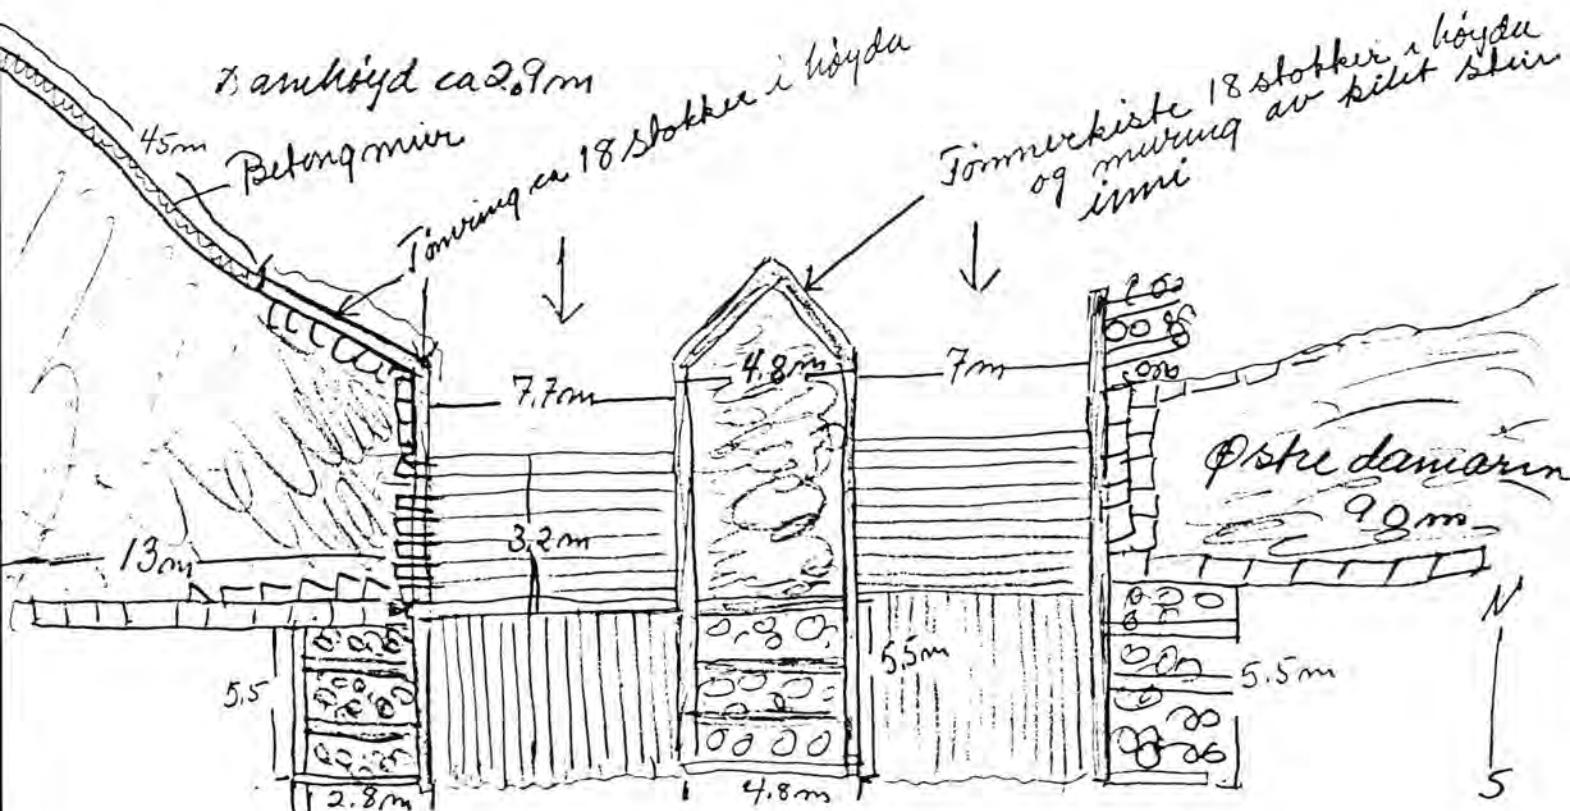 Damhøyd ca 2.9m
45m
Betongmur
Tømring ca 18 stokker i høyda
Tømmerkiste 18 stokker i høyda
og muring av kilt stein
inni
7.7m
4.8m
7m
Østre damarm
90m
13m
3.2m
5.5
5.5m
5.5m
N
S
2.8m
4.8m